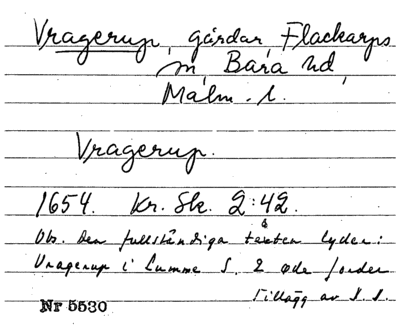 Vragerup, gårdar, Flackarps
sn, Bara hd,
Malm. l.
Vragerup.
1654. Kr. Sk. 2:42.
Obs. Den fullständiga texten lyder:
Vragerup i Lumme S. 2 øde jorder
Tillägg av
Nr 5530